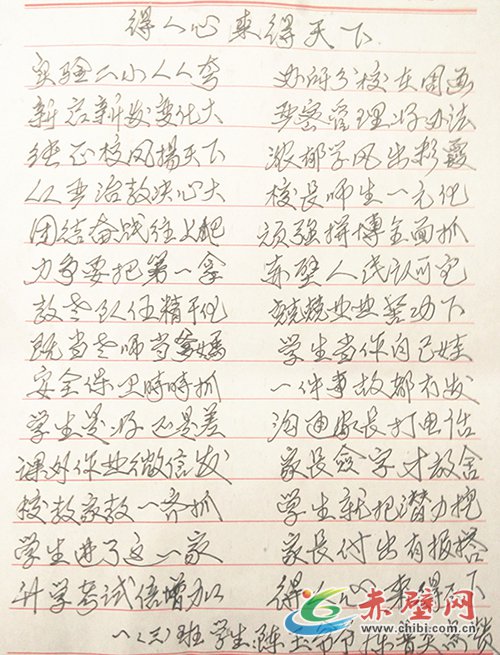 得人心来得天下
实验二小人人夸 办所分校在周画
新校新发变化大 严密管理好办法
纯正校风扬天下 浓郁学风出彩霞
从严治教决心大 校长师生一元化
团结奋战往上爬 顽强拼搏全面抓
力争要把第一拿 赤壁人民认可它
教老队伍精干化 兢兢业业苦功下
既当老师当爹妈 学生当作自己娃
安全保卫时时抓 一件事故都冇发
学生是好还是差 沟通家长打电话
课外作业微信发 家长签字才放舍
校教家教一齐抓 学生就把潜力挖
学生进了这一家 家长付出有报答
升学考试倍增加 得人心来得天下
一(三)班学生:陈
赤壁网
www.chibi.com.cn